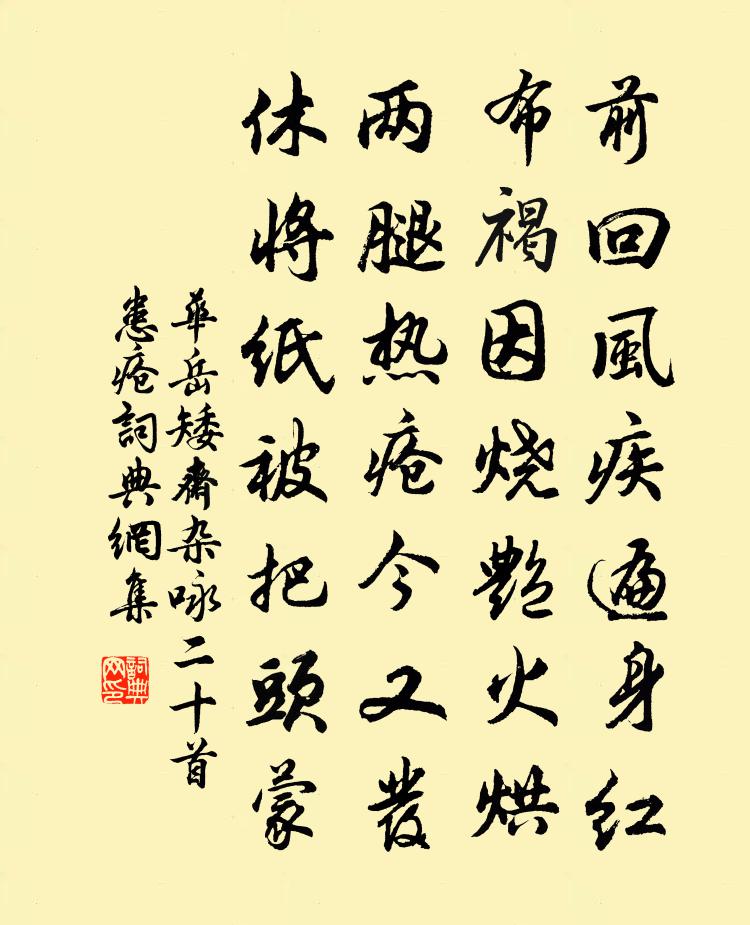 前回風疾遍身红
布褐因烧艶火烘
两腿热疮今又發
休将纸被把頭蒙
華岳矮齋杂咏二十首
患疮詞典網集
詞典网印